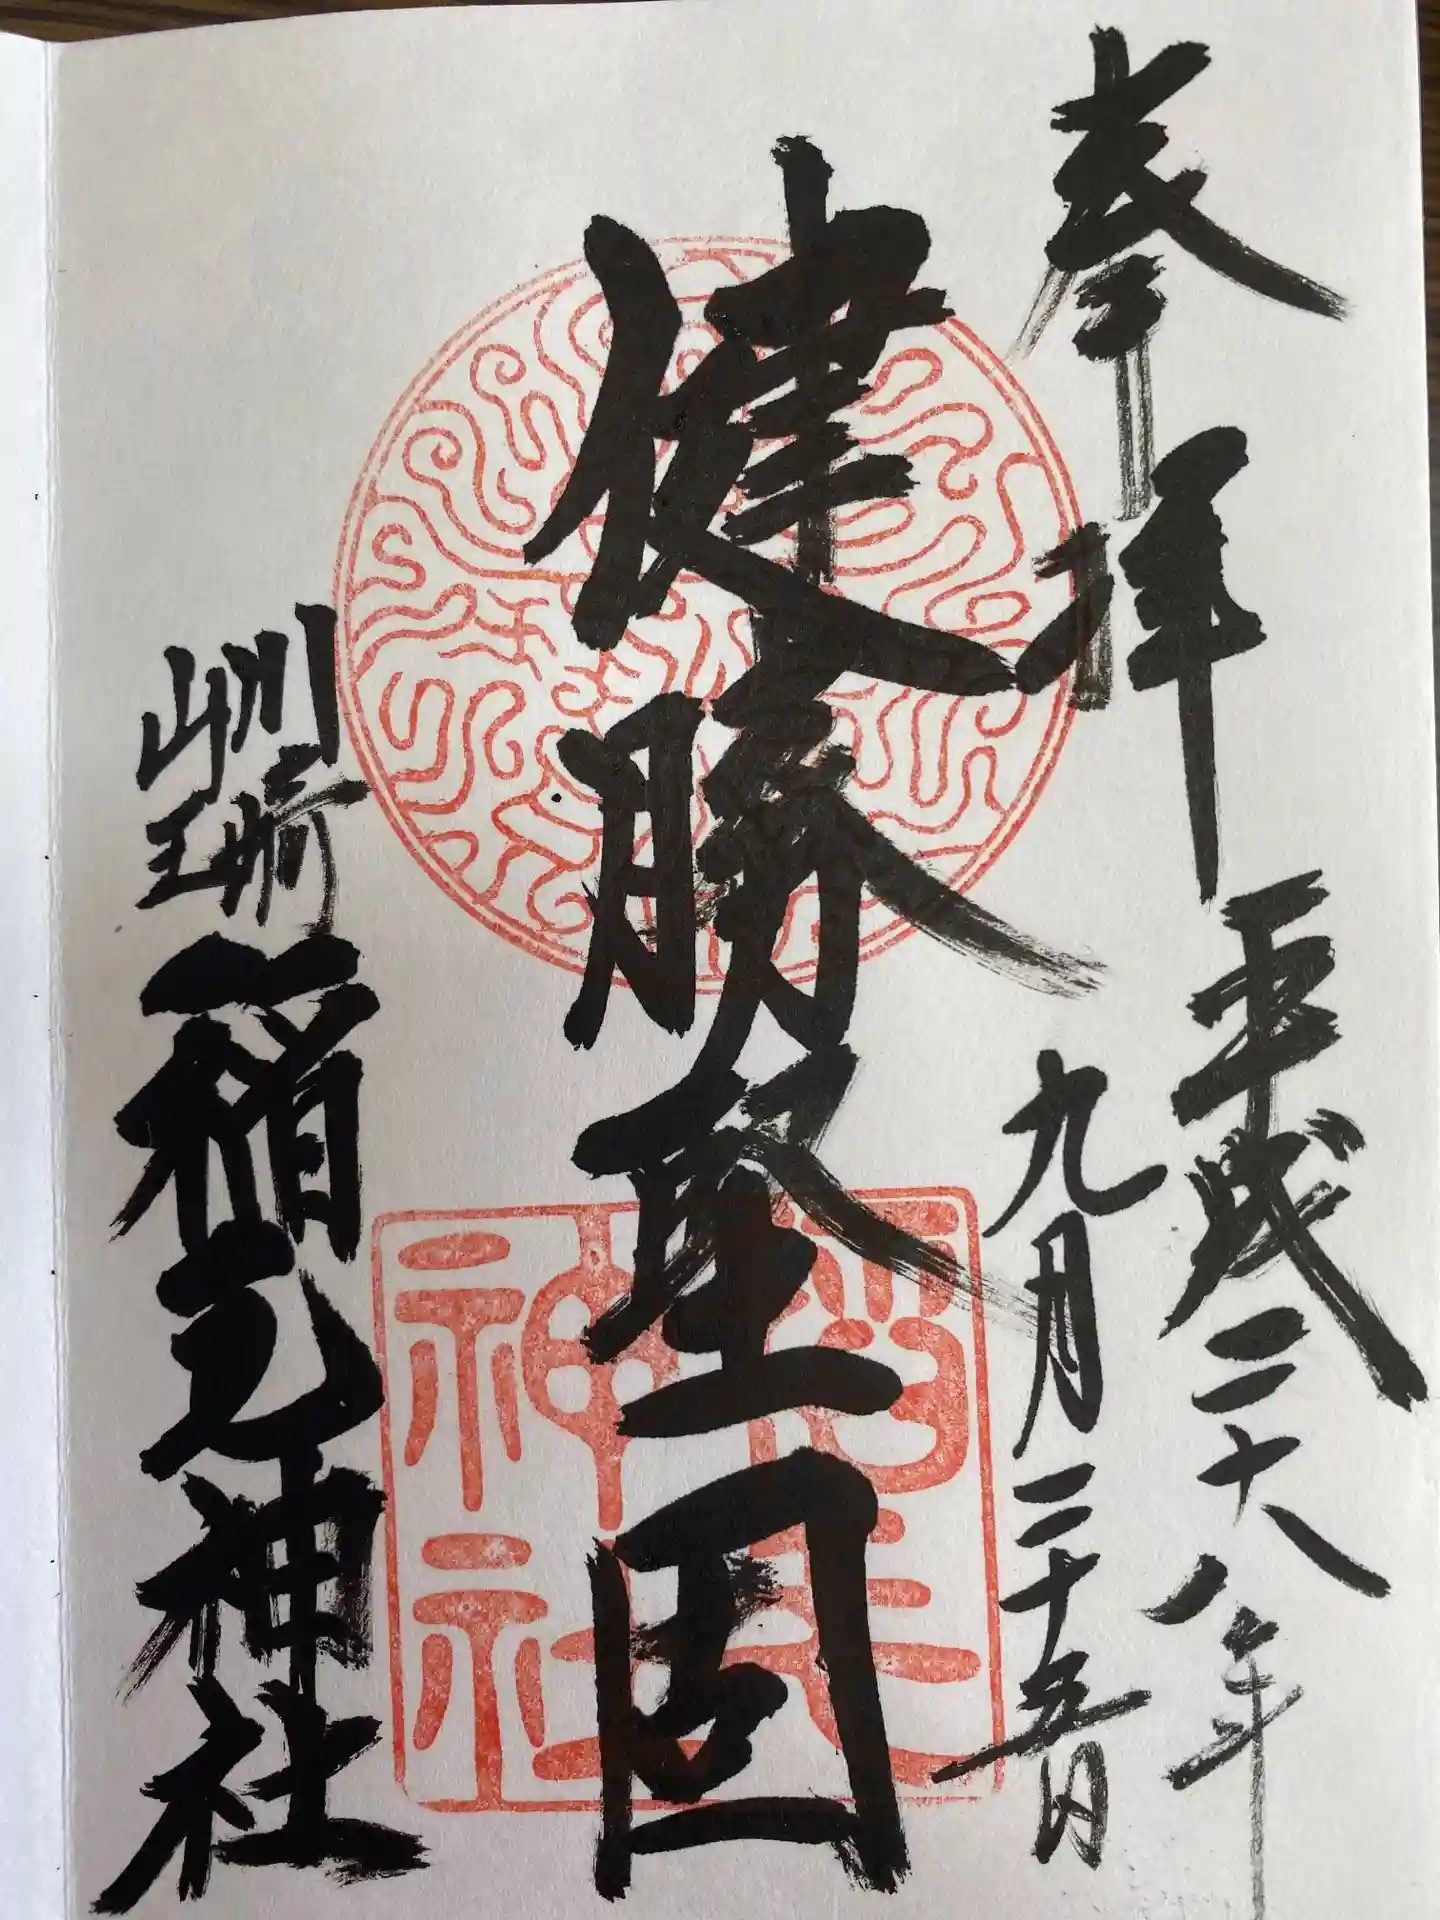 奉拝
平成二十八年
九月二十五日
健勝堅固
川崎
山王
稲毛神社
稲毛
神社